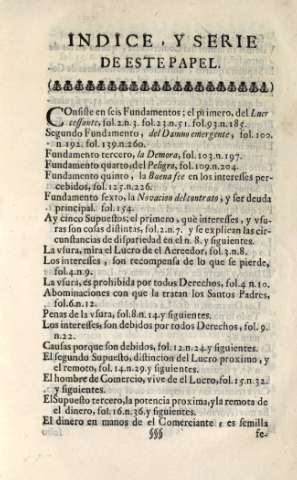 INDICE, Y SERIE
DE ESTE PAPEL.
COnsiste en seis Fundamentos; el primero, del Lucr
cessante, fol.2.n.3. fol.23.n.51. fol.93.n.185.
Segundo Fundamento, del Damno emergente, fol.100.
n.192. fol.139.n.260.
Fundamento tercero, la Demora, fol.103.n.197.
Fundamento quarto, del Peligro, fol.109.n.204.
Fundamento quinto, la Buena fee en los interesses per-
cebidos, fol.125.n.226.
Fundamento sexto, la Novacion del contrato, y ser deuda
principal. fol.154.
Ay cinco Supuestos; el primero, que interesses, y vsu-
ras son cosas distintas, fol.2.n.7. y se explican las cir-
cunstancias de disparidad en el n.8. y siguientes.
La vsura, mira el Lucro de el Acreedor, fol.3.n.8.
Los interesses, son recompensa de lo que se pierde,
fol.4.n.9.
La vsura, es prohibida por todos Derechos, fol.4 n.10.
Abominaciones con que la tratan los Santos Padres,
fol.6.n.12.
Penas de la vsura, fol.8.n.14.y siguientes.
Los interesses, son debidos por todos Derechos, fol. 9.
n.22.
Causas porque son debidos, fol.12.n.24.y siguientes.
El segundo Supuesto, distincion del Lucro proximo, y
el remoto, fol.14.n.29.y siguientes.
El hombre de Comercio, vive de el Lucro, fol.15.n.32.
y siguientes.
El Supuesto tercero, la potencia proxima, y la remota de
el dinero, fol.16.n.36.y siguientes.
El dinero en manos de el Comerciante, es semilla
§§§ se-